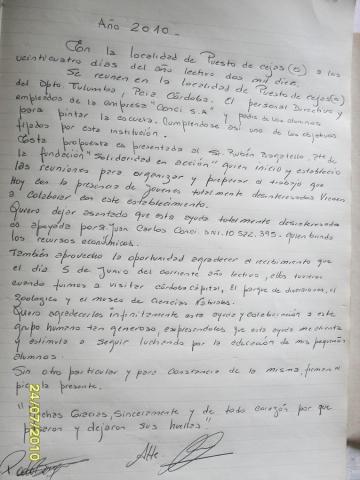 Año 2010.-
Con la localidad de Puesto de cejas(o) a los
veinticuatro días del año lectivo dos mil diez.
Se reunen en la localidad de Puesto de cejas(o)
del Dpto. Tulumba, Pcia Córdoba. El personal Directivo y
empleados de la empresa "Conci S.A" y padres de los alumnos
para pintar la escuela. Cumpliendose así uno de los objetivos
fijados por esta institución.
Esta propuesta es presentada al Sr. Rubén
la fundación "Solidaridad en acción" quien inicio y estableció
las reuniones para organizar y preparar el trabajo que
Hoy con la presencia de jóvenes totalmente desinteresados vienen
a colaborar con este establecimiento.
Quiero dejar asentado que esta ayuda totalmente desinteresada
es apoyada por Juan Carlos Conci DNI. 10.522.395. quien brinda
los recursos económicos.
También aprovecho la oportunidad agradecer el recibimiento que
el día 5 de Junio del corriente año lectivo, ellos tuvieron
cuando fuimos a visitar córdoba capital, El parque de diversiones, el
Zoológico y el museo de Ciencias Naturales.
Quiero agradecerles infinitamente esta ayuda y colaboración a este
grupo humano tan generoso expresandoles que esta ayuda me alienta
y estimula a seguir luchando por la educación de mis pequeños
alumnos.
Sin otro particular y para constancia de la misma, firman al
pie la presente.
"Muchas Gracias, Sinceramente y de todo corazón por que
pasaron y dejaron sus huellas"
Atte.
24/07/2010